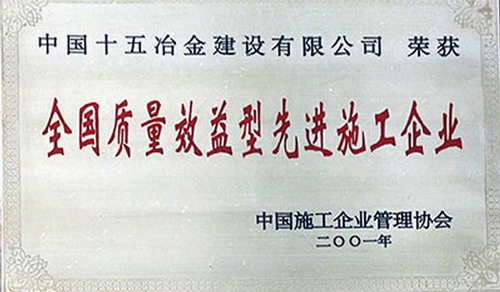 中国十五冶金建设有限公司 荣获
全国质量效益型先进施工企业
中国施工企业管理协会
二〇〇一年